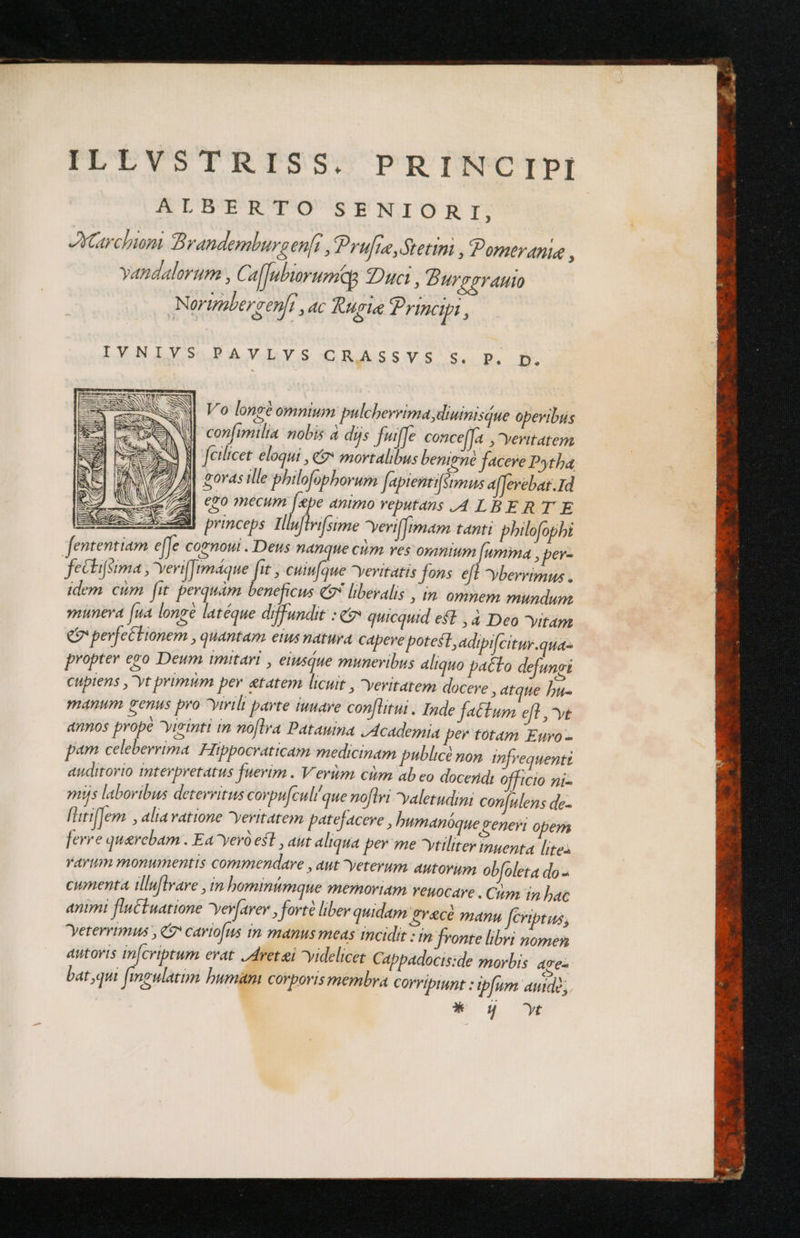 ILLVSTRISS. PRINCIPI
ALBERTO SENIORI,
Marchioni Brandemburgensi, Prusiæ, Stetini, Pomeraniæ,
vandalorum, Cassubiorumq; Duci, Burggrauio
Norimbergensi, ac Rugiæ Principi,
IVNIVS PAVLVS CRASSVS S. P. D.
DVo longè omnium pulcherrima, diuinisque operibus
consimilia nobis à dijs fuisse concessa, veritatem
scilicet eloqui, & mortalibus benignè facere Pytha
goras ille philosophorum sapientissimus asserebat. Id
ego mecum sæpe animo reputans ALBERTE
princeps Illustrissime verissimam tanti philosophi
sententiam esse cognoui. Deus nanque cùm res omnium summa, per-
fectissima, verissimáque sit, cuiusque veritatis fons est vberrimus.
idem cùm sit perquàm beneficus & liberalis, in omnem mundum
munera sua longè latéque diffundit: & quicquid est, à Deo vitam
& perfectionem, quantam eius natura capere potest, adipiscitur. qua-
propter ego Deum imitari, eiusque muneribus aliquo pacto defungi
cupiens, vt primùm per ætatem licuit, veritatem docere, atque hu-
manum genus pro virili parte iuuare constitui. Inde factum est, vt
annos propè viginti in nostra Patauina Academia per totam Euro-
pam celeberrima Hippocraticam medicinam publicè non infrequenti
auditorio interpretatus fuerim. Verùm cùm ab eo docendi officio ni-
mijs laboribus deterritus corpusculi que nostri valetudini consulens de-
stitissem, alia ratione veritatem patefacere, humanóque generi opem
ferre quærebam. Ea verò est, aut aliqua per me vtiliter inuenta lite-
rarum monumentis commendare, aut veterum autorum obsoleta do-
cumenta illustrare, in hominúmque memoriam reuocare. Cùm in hac
animi fluctuatione versarer, fortè liber quidam græcè manu scriptus,
veterrimus, & cariosus in manus meas incidit: in fronte libri nomen
autoris inscriptum erat Aretæi videlicet Cappadocis: de morbis age-
bat, qui singulatim humani corporis membra corripiunt: ipsum auidè,
* ij vt